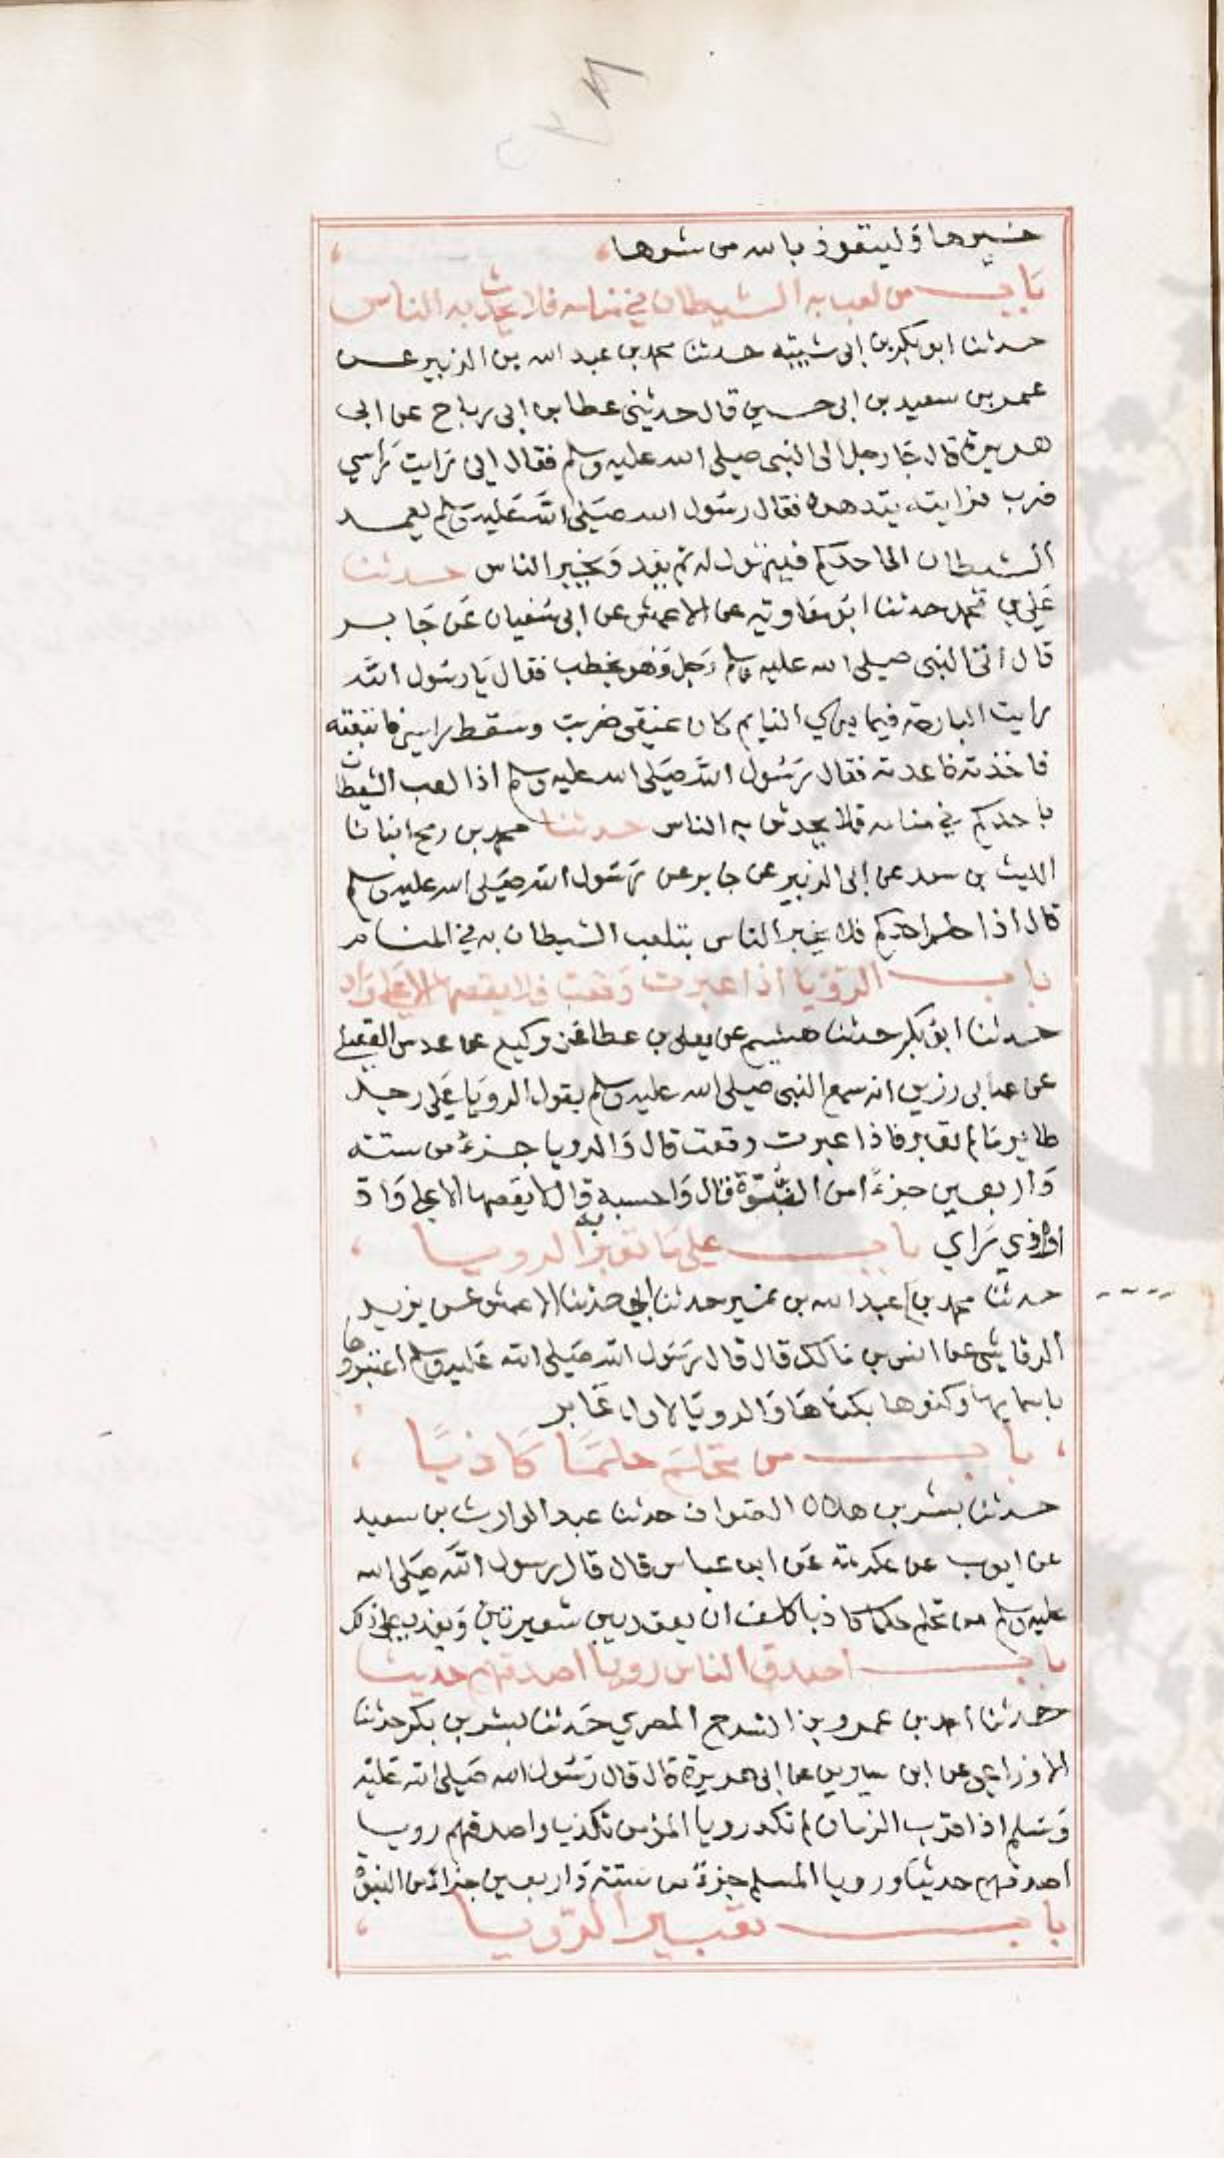 خيرها وليتعوذ بالله من شرها
باب من لعب به الشيطان في منامه فلا يحدث به الناس
حدثنا ابو بكر بن ابى شيبة حدثنا محمد بن عبد الله بن الزبير عن
عمر بن سعيد بن ابى حسين قال حدثني عطا بن ابى رباح عن ابى
هريرة قال جا رجل الى النبى صلى الله عليه وسلم فقال انى رايت راسي
ضرب فرايته يتدهده فقال رسول الله صلى الله عليه وسلم يعمد
الشيطان الى احدكم فيتهول له ثم يغد ويخبر الناس حدثنا
علي بن محمد حدثنا ابو معاوية عن الاعمش عن ابى سفيان عن جابر
قال اتى النبى صلى الله عليه وسلم رجل وهو يخطب فقال يا رسول الله
رايت البارحة فيما يراي النايم كان عنقي ضربت وسقط راسي فاتبعته
فاخذته فاعدته فقال رسول الله صلى الله عليه وسلم اذا لعب الشيطان
باحدكم في منامه فلا يحدثن به الناس حدثنا محمد بن رمح انبانا
الليث بن سعد عن ابى الزبير عن جابر عن رسول الله صلى الله عليه وسلم
قال اذا حلم احدكم فلا يخبر الناس بتلعب الشيطان به في المنام
باب الرؤيا اذا عبرت وقعت فلا يقصها الا على واد
حدثنا ابو بكر حدثنا هشيم عن يعلى بن عطا عن وكيع عن عدس العقيلي
عن عمه ابى رزين انه سمع النبى صلى الله عليه وسلم يقول الرويا على رجل
طاير ما لم تعبر فاذا عبرت وقعت قال والرويا جزء من ستة
واربعين جزءا من النبوة قال واحسبه قال لا يقصها الا على واد
او ذي راي باب على ما تعبر به الرويا
حدثنا محمد بن عبد الله بن نمير حدثنا ابي حدثنا الاعمش عن يزيد
الرقاشي عن انس بن مالك قال قال رسول الله صلى الله عليه وسلم اعتبروها
باسمايها وكنوها بكناها والرويا لاول عابر
باب من تحلم حلما كاذبا
حدثنا بشر بن هلال الصواف حدثنا عبد الوارث بن سعيد
عن ايوب عن عكرمة عن ابن عباس قال قال رسول الله صلى الله
عليه وسلم من تحلم حلما كاذبا كلف ان يعقد بين شعيرتين ويعذب على ذلك
باب اصدق الناس رويا اصدقهم حديثا
حدثنا احمد بن عمرو بن السرح المصري حدثنا بشر بن بكر حدثنا
الاوزاعي عن ابن سيرين عن ابى هريرة قال قال رسول الله صلى الله عليه
وسلم اذا اقترب الزمان لم تكد رويا المؤمن تكذب واصدقهم رويا
اصدقهم حديثا ورويا المسلم جزء من ستة واربعين جزا من النبوة
باب تعبير الرؤيا